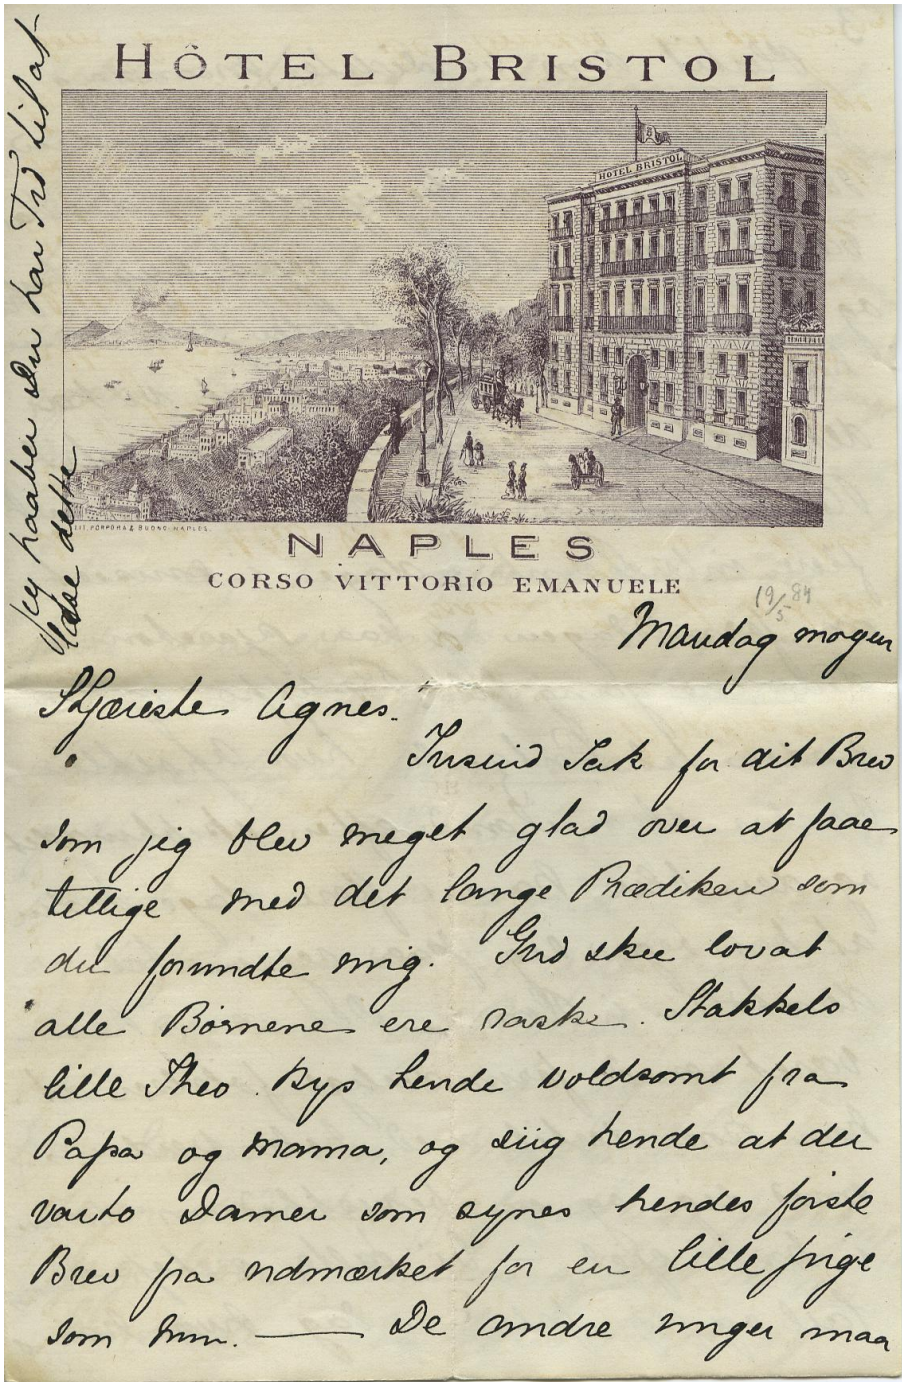 HÔTEL BRISTOL
HOTEL BRISTOL
B
LIT. PORPORA & BUONO-NAPLES.
NAPLES
CORSO VITTORIO EMANUELE
19/5 84
Mandag morgen
Kjæreste Agnes.
Tusind Tak for dit Brev
som jeg blev meget glad over at faae
tillige med det lange Prædiken som
du forundte mig. Gud skee lovat
alle Börnene ere raske. Stakkels
lille Theo. Kys hende voldsomt fra
Papa og Mama, og siig hende at der
var to Damer som synes hendes förste
Brev fra udmærket for en lille pige
som hun. — De andre unger maa
Jeg haaber du har Tid til at
læse dette